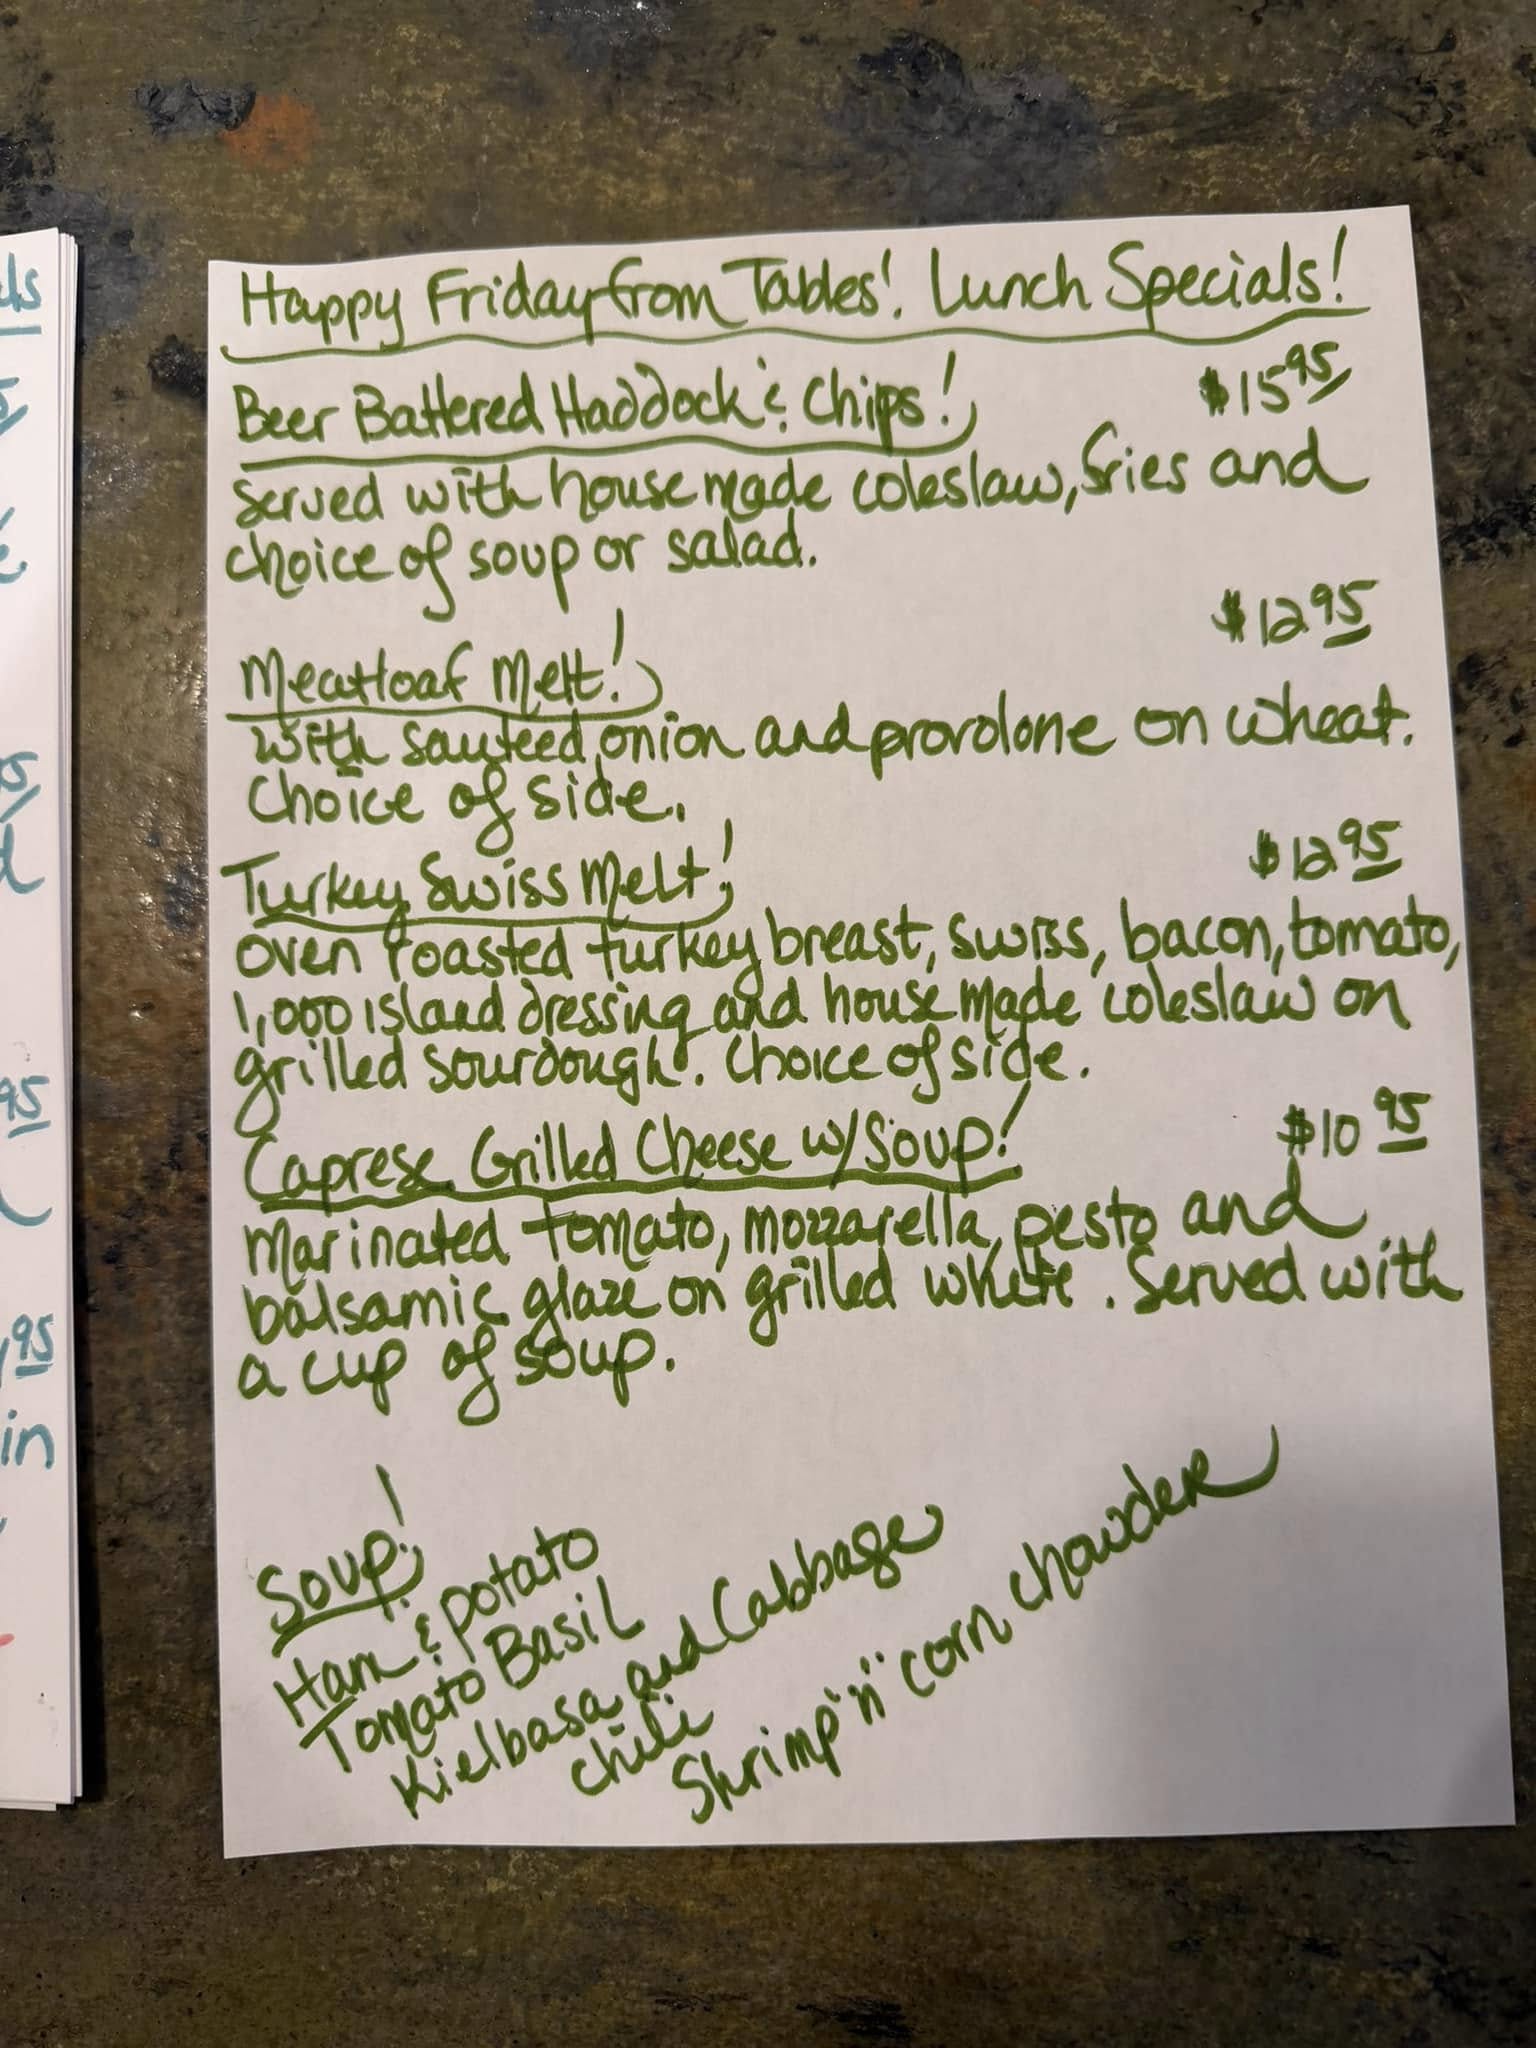 Happy Friday from Tables! Lunch Specials!
Beer Battered Haddock & Chips! $15.95
Served with house made coleslaw, fries and
choice of soup or salad.
$12.95
Meatloaf Melt!
with sauteed onion and provolone on wheat.
Choice of side.
Turkey Swiss Melt! $12.95
oven roasted turkey breast, swiss, bacon, tomato,
1,000 island dressing and house made coleslaw on
grilled sourdough. Choice of side.
Caprese Grilled Cheese w/ Soup! $10.95
Marinated tomato, mozzarella, pesto and
balsamic glaze on grilled white. Served with
a cup of soup.
Soup!
Ham & potato
Tomato Basil
Kielbasa and Cabbage
chili
Shrimp "n" corn chowder
95
95
in